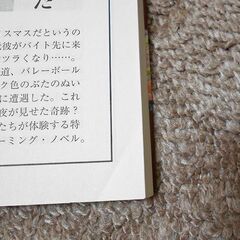 た
リスマスだというの
彼がバイト先に来
ツラくなり……。
道、バレーボール
ク色のぶたのぬい
に遭遇した。これ
夜が見せた奇跡?
たちが体験する特
ーミング・ノベル。